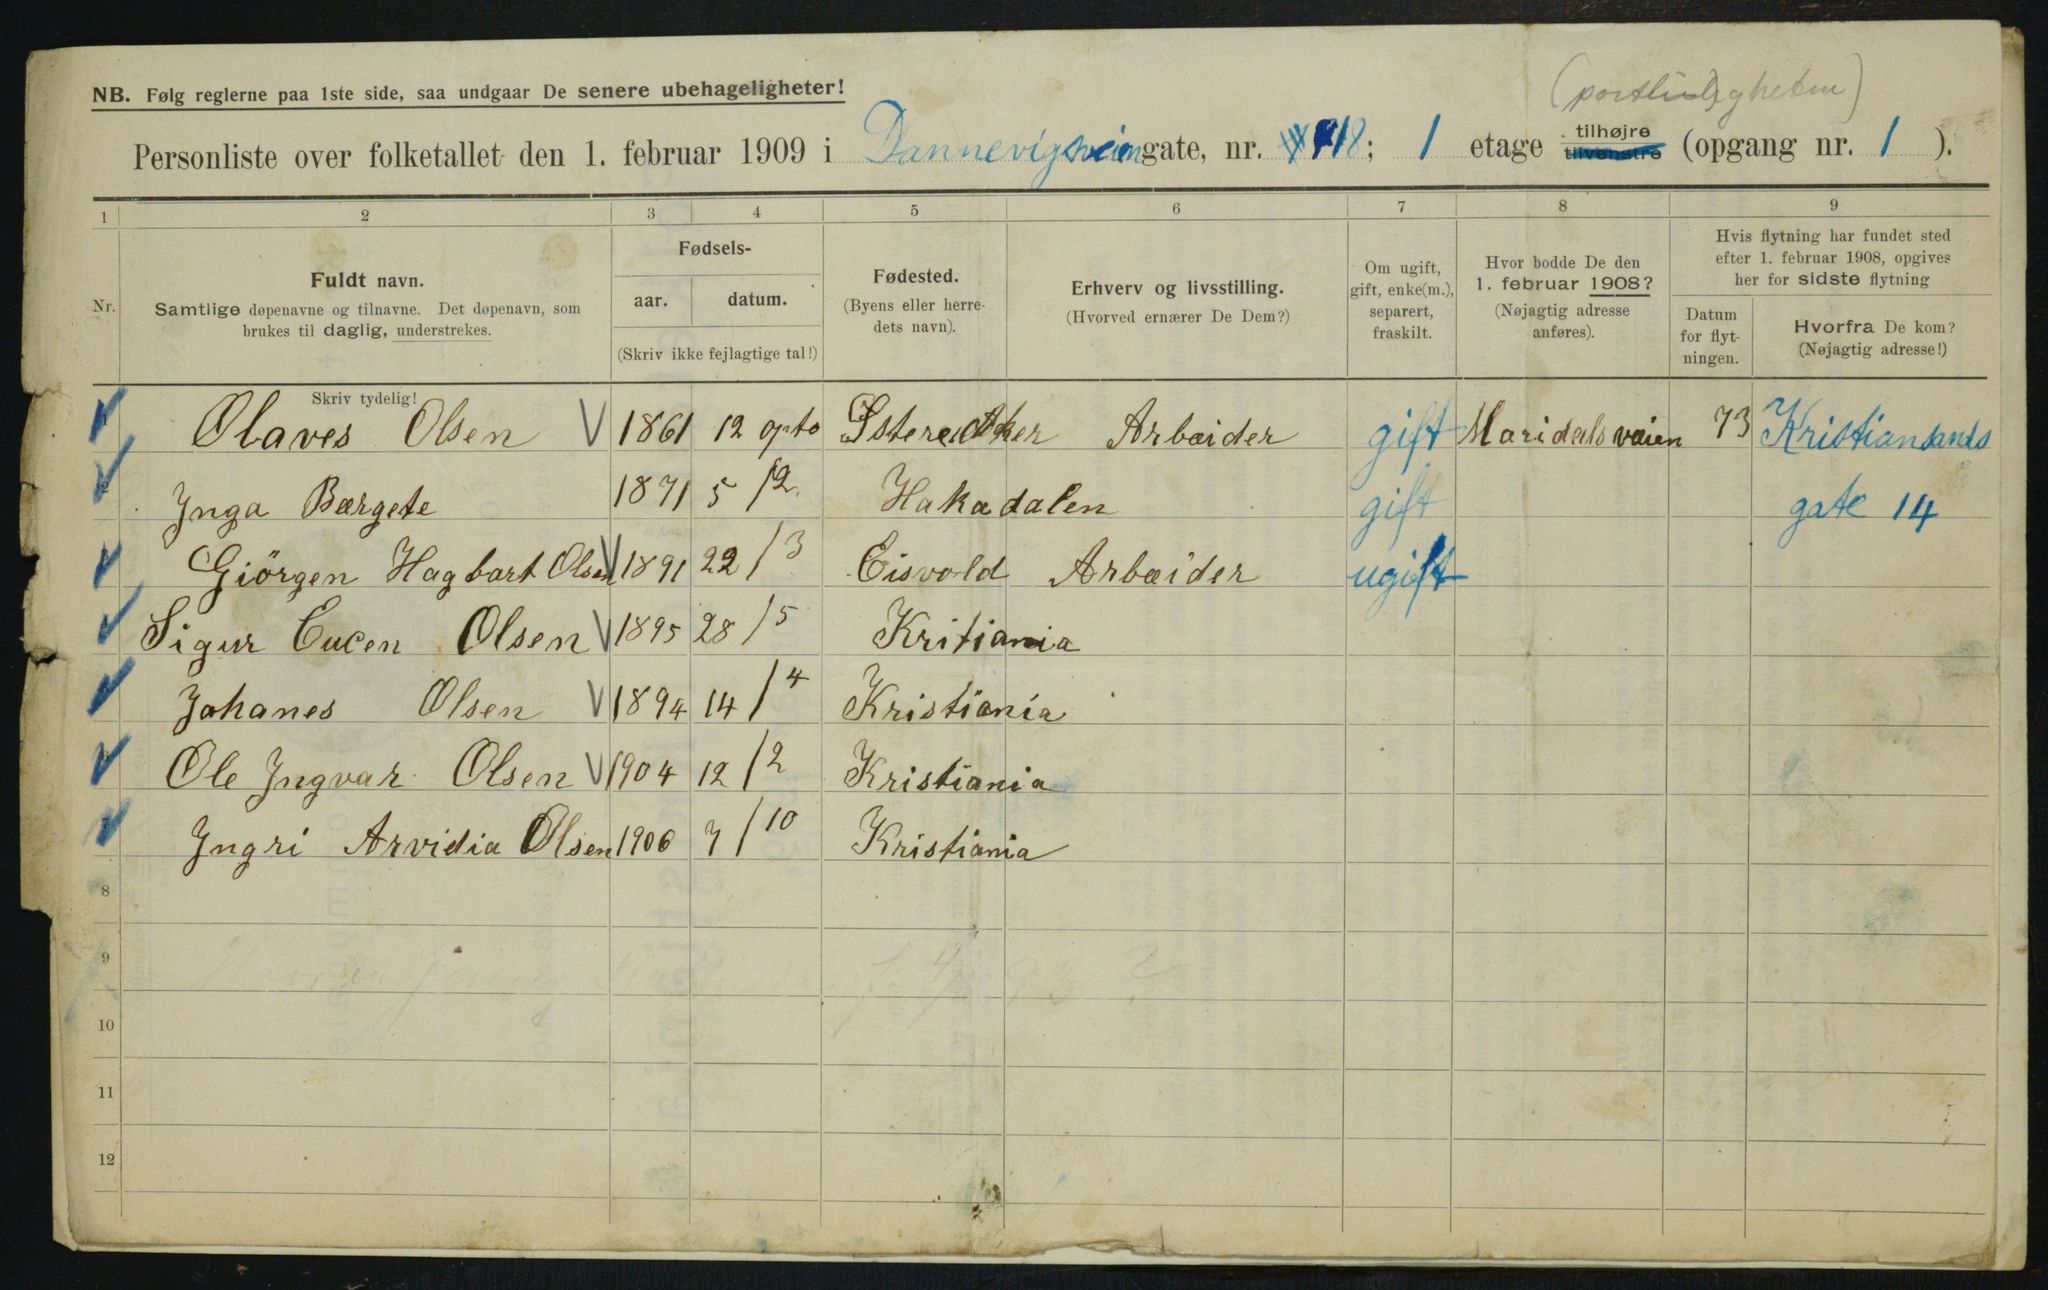 (portlislegheten)
NB. Følg reglerne paa 1ste side, saa undgaar De senere ubehageligheter!
Personliste over folketallet den 1. februar 1909 i Dannevigsveien gate, nr. 18; 1 etage tilhøjre tilvenstre (opgang nr. 1 ).
1 2 3 4 5 6 7 8 9
Nr.
Fuldt navn.
Samtlige døpenavne og tilnavne. Det døpenavn, som
brukes til daglig, understrekes.
Skriv tydelig!
Fødsels-
aar. datum.
(Skriv ikke fejlagtige tal!)
Fødested.
(Byens eller herre-
dets navn).
Erhverv og livsstilling.
(Hvorved ernærer De Dem?)
Om ugift,
gift, enke(m.),
separert,
fraskilt.
Hvor bodde De den
1. februar 1908?
(Nøjagtig adresse
anføres).
Hvis flytning har fundet sted
efter 1. februar 1908, opgives
her for sidste flytning
Datum
for flyt-
ningen.
Hvorfra De kom?
(Nøjagtig adresse!)
1 Olaves Olsen 1861 12 opto Østere Aker Arbæider gift Maridalsvaien 73 Kristiansands
2 Ynga Bærgete 1871 5/2. Hakadalen gift gate 14
Giörgen Hagbart Olsen 1891 22/3 Eisvold Arbæider ugift
Sigur Eucen Olsen 1895 28/5 Kritiania
Johanes Olsen 1894 14/4 Kristiania
Ole Yngvar Olsen 1904 12/2 Kristiania
7 Yngri Arvidia Olsen 1906 7/10 Kristiania
8
9
10
11
12